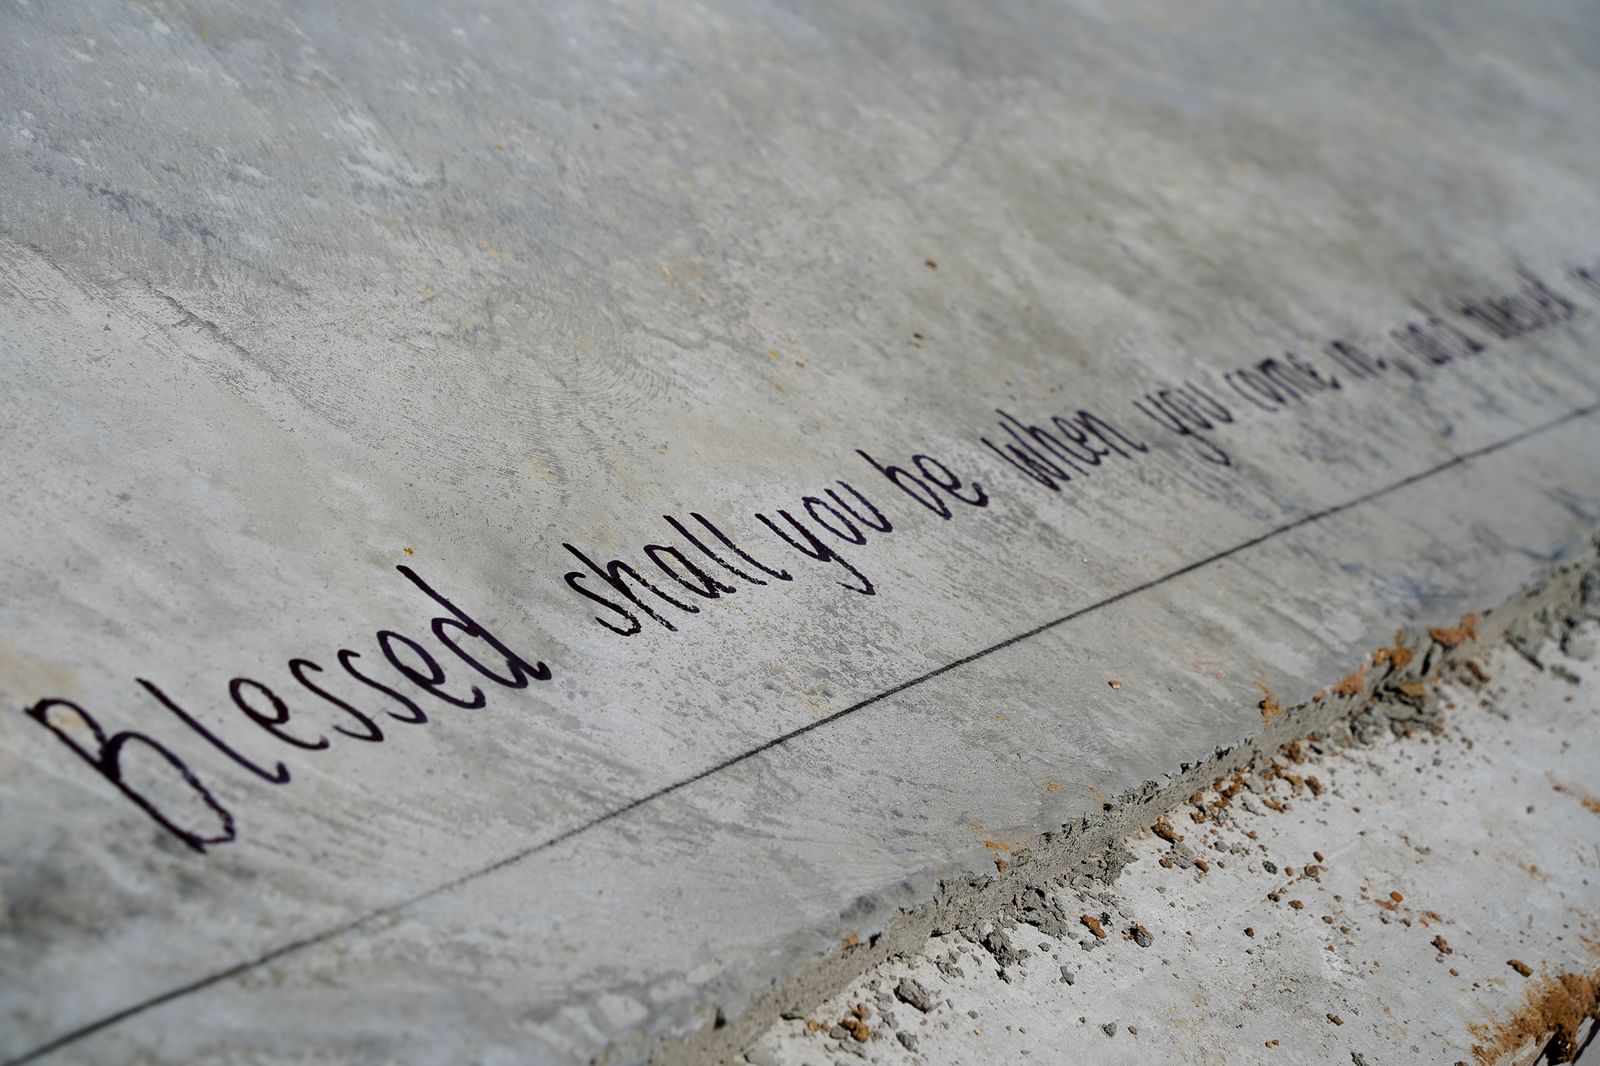 Blessed shall you be when you come in, and blessed